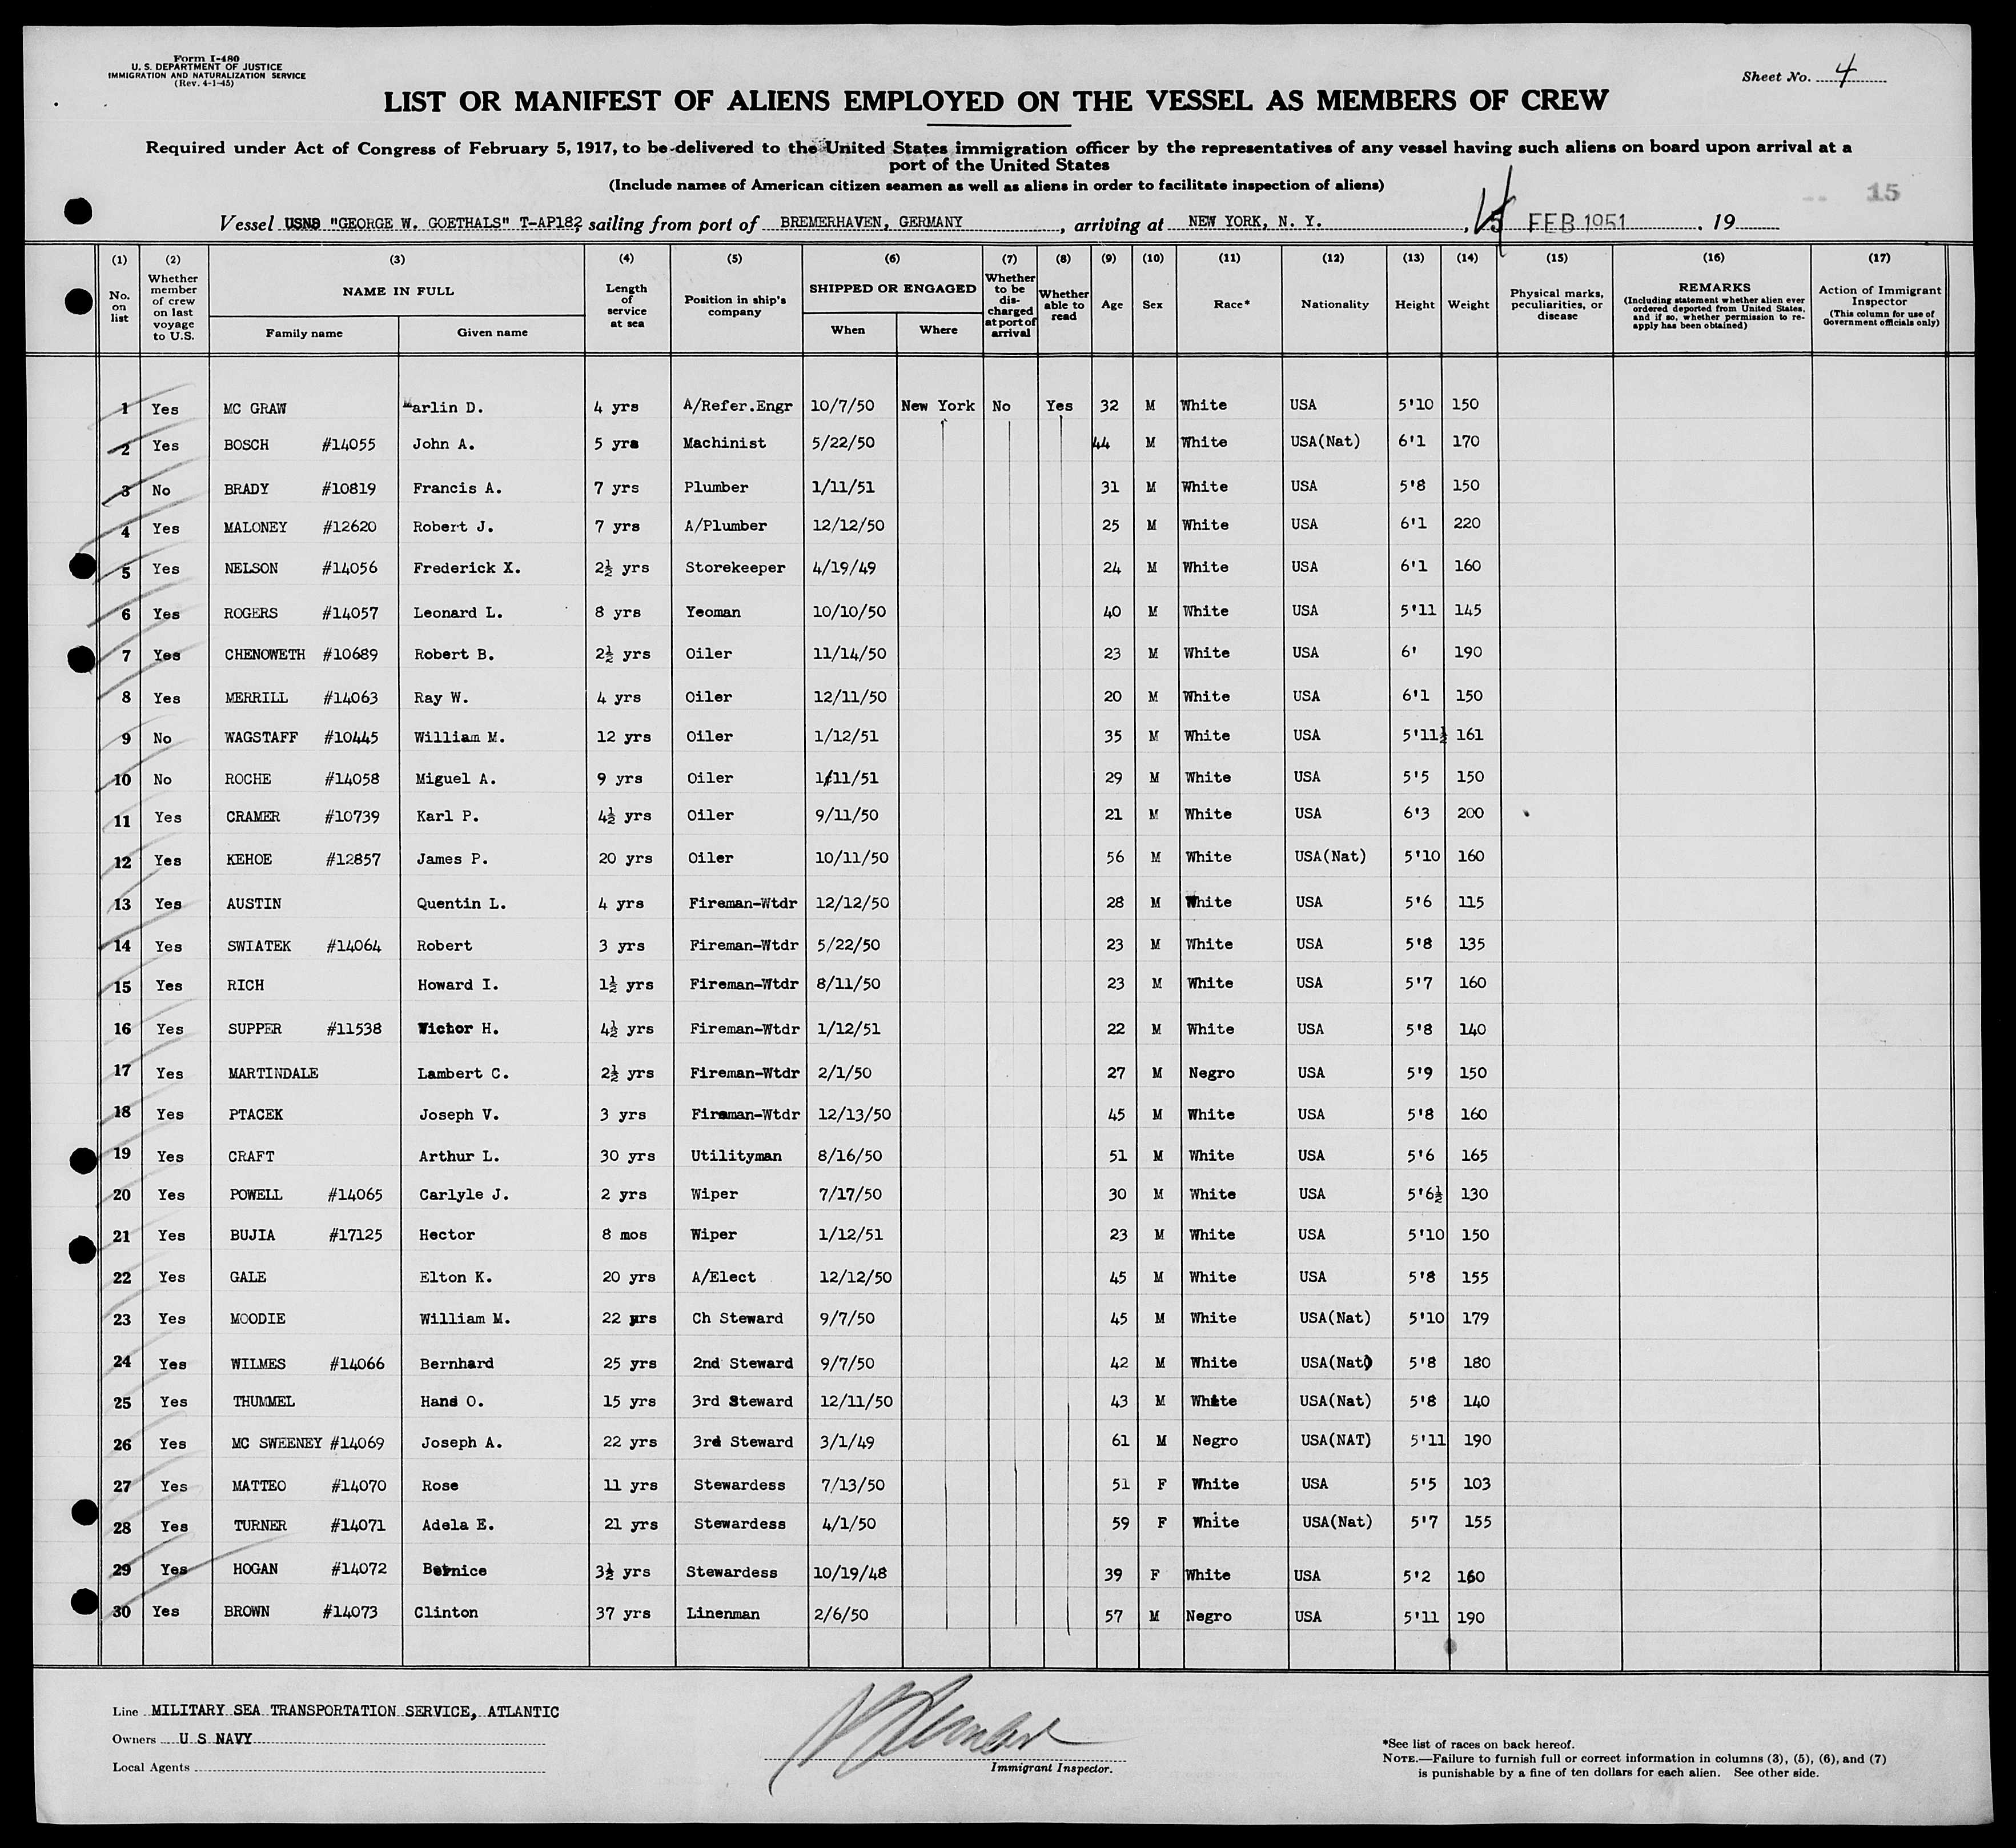 Form I-480
U. S. DEPARTMENT OF JUSTICE
IMMIGRATION AND NATURALIZATION SERVICE
(Rev. 4-1-45)
Sheet No. 4
LIST OR MANIFEST OF ALIENS EMPLOYED ON THE VESSEL AS MEMBERS OF CREW
Required under Act of Congress of February 5, 1917, to be delivered to the United States immigration officer by the representatives of any vessel having such aliens on board upon arrival at a
port of the United States
(Include names of American citizen seamen as well as aliens in order to facilitate inspection of aliens)
15
Vessel USNS "GEORGE W. GOETHALS" T-AP182, sailing from port of BREMERHAVEN, GERMANY, arriving at NEW YORK, N. Y., 15 FEB 1951, 19
(1) No. on list (2) Whether member of crew on last voyage to U.S. (3) NAME IN FULL Family name Given name (4) Length of service at sea (5) Position in ship's company (6) SHIPPED OR ENGAGED When Where (7) Whether to be discharged at port of arrival (8) Whether able to read (9) Age (10) Sex (11) Race* (12) Nationality (13) Height (14) Weight (15) Physical marks, peculiarities, or disease (16) REMARKS (Including statement whether alien ever ordered deported from United States, and if so, whether permission to re-apply has been obtained) (17) Action of Immigrant Inspector (This column for use of Government officials only)
1 Yes MC GRAW Marlin D. 4 yrs A/Refer.Engr 10/7/50 New York No Yes 32 M White USA 5'10 150
2 Yes BOSCH #14055 John A. 5 yrs Machinist 5/22/50 44 M White USA(Nat) 6'1 170
3 No BRADY #10819 Francis A. 7 yrs Plumber 1/11/51 31 M White USA 5'8 150
4 Yes MALONEY #12620 Robert J. 7 yrs A/Plumber 12/12/50 25 M White USA 6'1 220
5 Yes NELSON #14056 Frederick X. 2½ yrs Storekeeper 4/19/49 24 M White USA 6'1 160
6 Yes ROGERS #14057 Leonard L. 8 yrs Yeoman 10/10/50 40 M White USA 5'11 145
7 Yes CHENOWETH #10689 Robert B. 2½ yrs Oiler 11/14/50 23 M White USA 6' 190
8 Yes MERRILL #14063 Ray W. 4 yrs Oiler 12/11/50 20 M White USA 6'1 150
9 No WAGSTAFF #10445 William M. 12 yrs Oiler 1/12/51 35 M White USA 5'11½ 161
10 No ROCHE #14058 Miguel A. 9 yrs Oiler 1/11/51 29 M White USA 5'5 150
11 Yes CRAMER #10739 Karl P. 4½ yrs Oiler 9/11/50 21 M White USA 6'3 200
12 Yes KEHOE #12857 James P. 20 yrs Oiler 10/11/50 56 M White USA(Nat) 5'10 160
13 Yes AUSTIN Quentin L. 4 yrs Fireman-Wtdr 12/12/50 28 M White USA 5'6 115
14 Yes SWIATEK #14064 Robert 3 yrs Fireman-Wtdr 5/22/50 23 M White USA 5'8 135
15 Yes RICH Howard I. 1½ yrs Fireman-Wtdr 8/11/50 23 M White USA 5'7 160
16 Yes SUPPER #11538 H. 4½ yrs Fireman-Wtdr 1/12/51 22 M White USA 5'8 140
17 Yes MARTINDALE Lambert C. 2½ yrs Fireman-Wtdr 2/1/50 27 M Negro USA 5'9 150
18 Yes PTACEK Joseph V. 3 yrs Fireman-Wtdr 12/13/50 45 M White USA 5'8 160
19 Yes CRAFT Arthur L. 30 yrs Utilityman 8/16/50 51 M White USA 5'6 165
20 Yes POWELL #14065 Carlyle J. 2 yrs Wiper 7/17/50 30 M White USA 5'6½ 130
21 Yes BUJIA #17125 Hector 8 mos Wiper 1/12/51 23 M White USA 5'10 150
22 Yes GALE Elton K. 20 yrs A/Elect 12/12/50 45 M White USA 5'8 155
23 Yes MOODIE William M. 22 yrs Ch Steward 9/7/50 45 M White USA(Nat) 5'10 179
24 Yes WILMES #14066 Bernhard 25 yrs 2nd Steward 9/7/50 42 M White USA(Nat) 5'8 180
25 Yes THUMMEL Hans O. 15 yrs 3rd Steward 12/11/50 43 M White USA(Nat) 5'8 140
26 Yes MC SWEENEY #14069 Joseph A. 22 yrs 3rd Steward 3/1/49 61 M Negro USA(NAT) 5'11 190
27 Yes MATTEO #14070 Rose 11 yrs Stewardess 7/13/50 51 F White USA 5'5 103
28 Yes TURNER #14071 Adela E. 21 yrs Stewardess 4/1/50 59 F White USA(Nat) 5'7 155
29 Yes HOGAN #14072 Bernice 3½ yrs Stewardess 10/19/48 39 F White USA 5'2 160
30 Yes BROWN #14073 Clinton 37 yrs Linenman 2/6/50 57 M Negro USA 5'11 190
Line MILITARY SEA TRANSPORTATION SERVICE, ATLANTIC
Owners U S NAVY
Local Agents
Immigrant Inspector.
*See list of races on back hereof.
NOTE.—Failure to furnish full or correct information in columns (3), (5), (6), and (7)
is punishable by a fine of ten dollars for each alien. See other side.